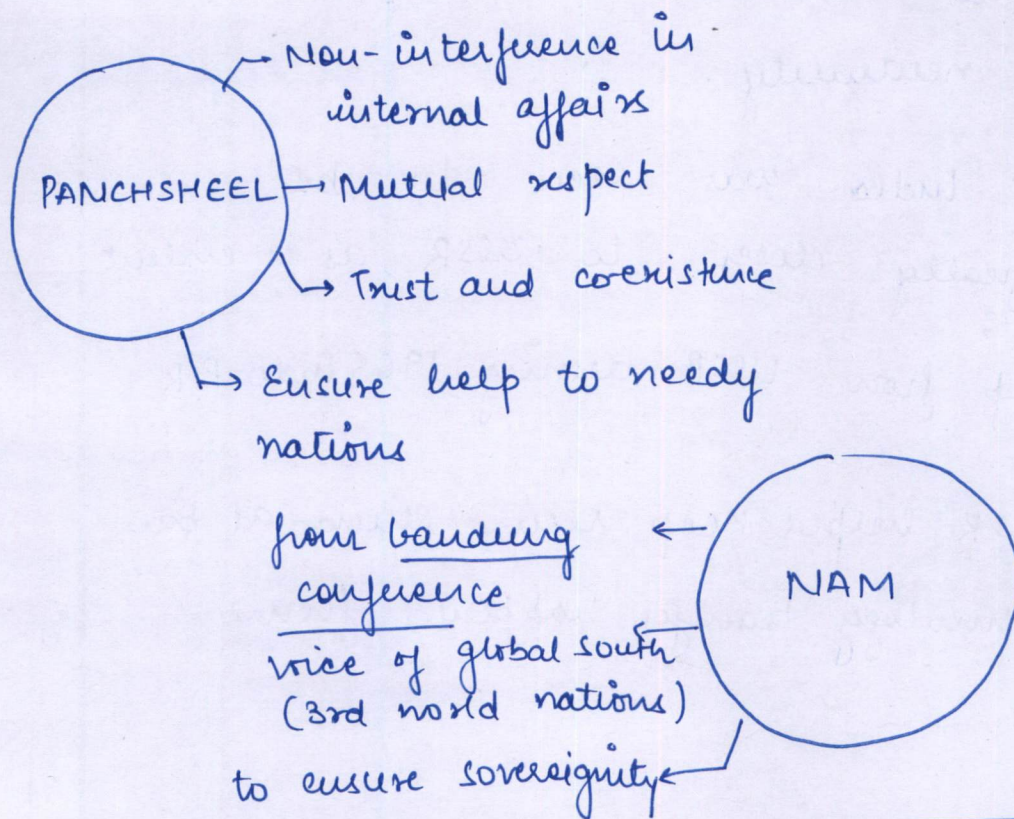 Non-interference in
internal affairs
PANCHSHEEL → Mutual respect
Trust and coexistence
Ensure help to needy
nations
from bandung
conference
NAM
voice of global south
(3rd world nations)
to ensure sovereignity